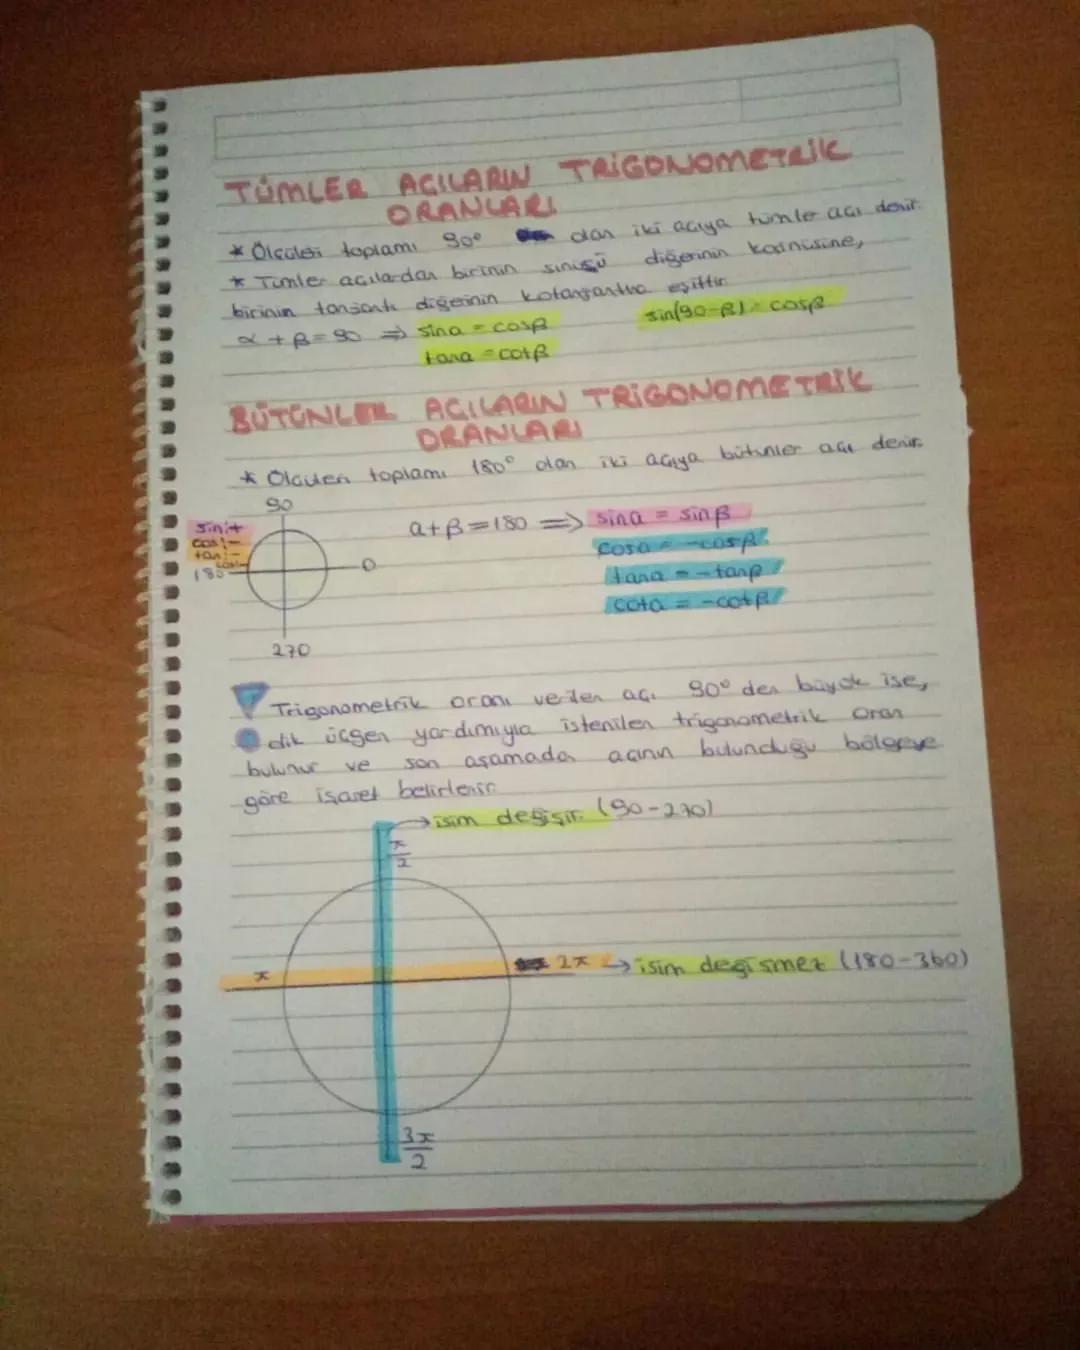 TÜMLER AÇILARIN TRİGONOMETRİK
ORANLARI
* Ölçüleri toplamı 90° olan iki açıya tümler açı denir.
* Tümler açılardan birinin sinüsü diğerinin kosinüsüne,
birinin tanjantı diğerinin kotanjantına eşittir.
α + β = 90 ⇒ sina = cosβ
sin(90-β) = cosβ
tana = cotβ
BÜTÜNLER AÇILARIN TRİGONOMETRİK
ORANLARI
* Ölçüleri toplamı 180° olan iki açıya bütünler açı denir.
90
sin:+
cos:-
tan:-
cot:-
180
0
270
a+β=180 ⇒ sina = sinβ
cosa = -cosβ
tana = -tanβ
cota = -cotβ
Trigonometrik oranı verilen açı 90° den büyük ise,
dik üçgen yardımıyla istenilen trigonometrik oran
bulunur ve son aşamada açının bulunduğu bölgeye
göre işaret belirlenir.
→ isim değişir. (90-270)
π/2
π
2π → isim değişmez (180-360)
3π/2